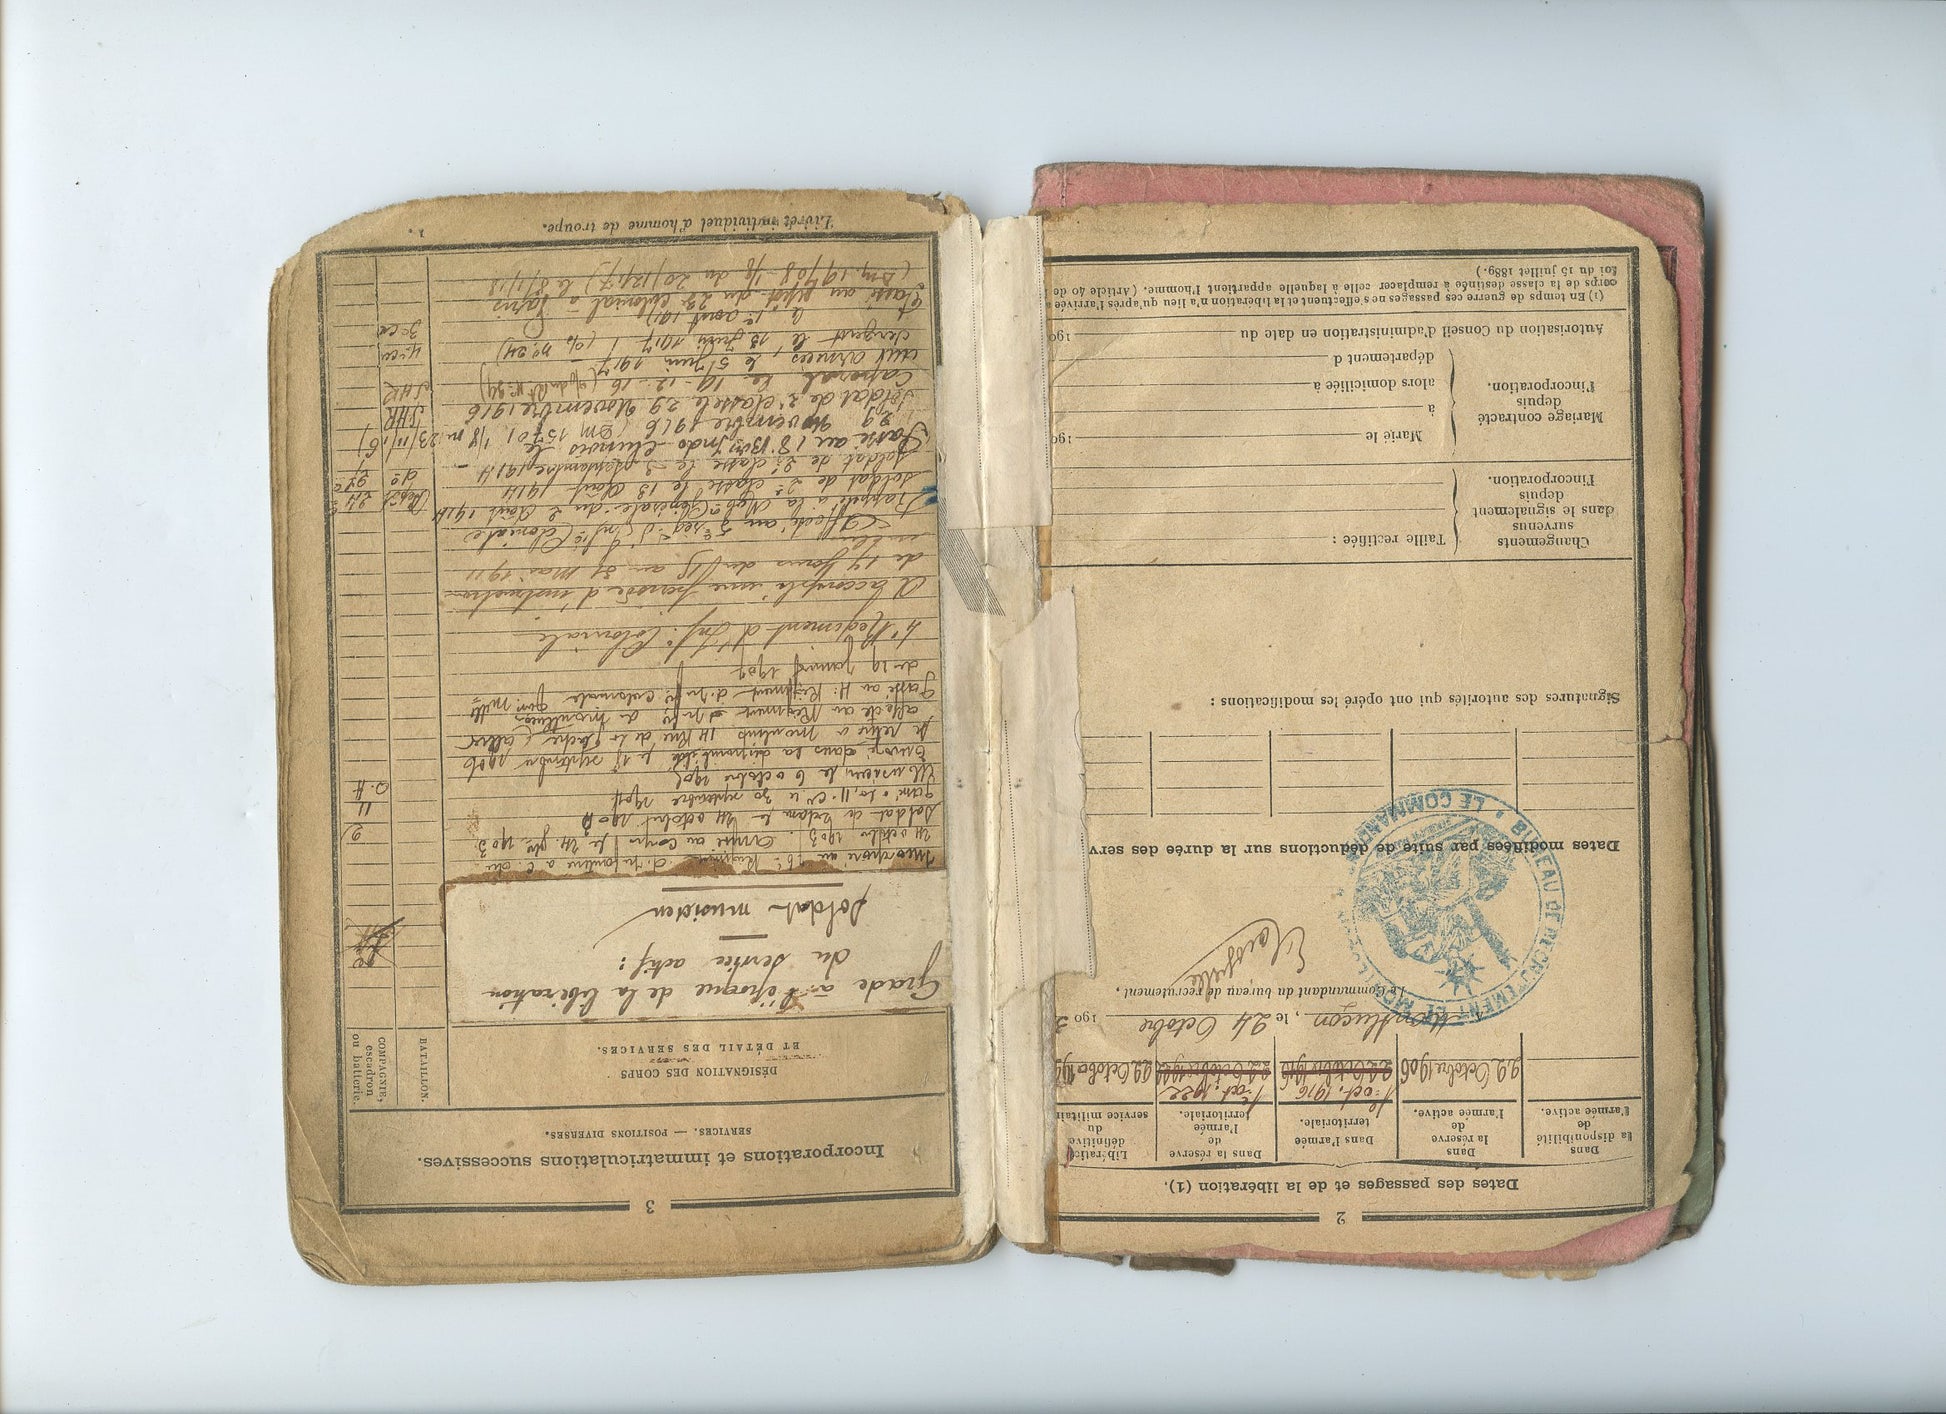 2
Dates des passages et de la libération (1).
Dans la disponibilité de l'armée active.
Dans la réserve de l'armée active.
Dans l'armée territoriale.
Dans la réserve de l'armée territoriale.
Libération définitive du service militaire
1er oct. 1916
1er oct. 1922
22 Octobre 1906
22 Octobre 1916
22 Octobre 1922
22 Octobre
A Montluçon, le 24 Octobre 190
Le Commandant du bureau de recrutement,
BUREAU DE RECRUTEMENT ET MOBIL
LE COMMAND
Dates modifiées par suite de déductions sur la durée des serv
Signatures des autorités qui ont opéré les modifications :
Changements survenus dans le signalement depuis l'incorporation.
Taille rectifiée :
Mariage contracté depuis l'incorporation.
Marié le 190
à
alors domiciliée à
département d
Autorisation du Conseil d'administration en date du 190
(1) En temps de guerre ces passages ne s'effectuent et la libération n'a lieu qu'après l'arrivée a
corps de la classe destinée à remplacer celle à laquelle appartient l'homme. (Article 40 de l
loi du 15 juillet 1889.)
3
Incorporations et immatriculations successives.
SERVICES. — POSITIONS DIVERSES.
DÉSIGNATION DES CORPS
ET DÉTAIL DES SERVICES.
BATAILLON.
COMPAGNIE, escadron ou batterie.
Grade à l'époque de la libération
du service actif :
Soldat musicien
Incorporé au Régiment d'Infanterie à C. du
24 octobre 1903. Arrivé au corps le 24 1903
Soldat de le 24 octobre 190
9
Passé à la 11e Cie le 30 septembre 1904
11
Musicien le 6 octobre 190
S.H
Envoyé dans la disponibilité le 18 septembre 1906
se retire à Moulins 14 Rue de la (Allier)
affecté au Régiment d'Infie à Montluçon
Passé au 4e Régiment d'Infie Coloniale
du 19 janvier 1907
4e Régiment d'Infie Coloniale
A accompli une période d'instruction
de 17 jours du 15 au 31 Mai 1911
Affecté au 5e Reg. d'Infie Coloniale
Rappelé à la Mobon Générale du 2 Août 1914
Soldat de 2e classe le 13 Août 1914
Dépôt
Soldat de 2e classe le 3 septembre 1914
do
27e
Passé au 18e Bon Indo-chinois le
29 Novembre 1916 (DM 15701 1/8 du 23/11/16)
Soldat de 2e classe le 29 Novembre 1916
SHR
Caporal le 19-12-16
SHR
aux armées, le 5 Juin 1917
4e Cie
Sergent le 13 Juin 1917
3e Cie
le 1er août 1917
Passé au dépôt du 23e Colonial à Paris
(DM. 19708 1/8 du 20/12/17) le 8/1/18
Livret individuel d'homme de troupe.